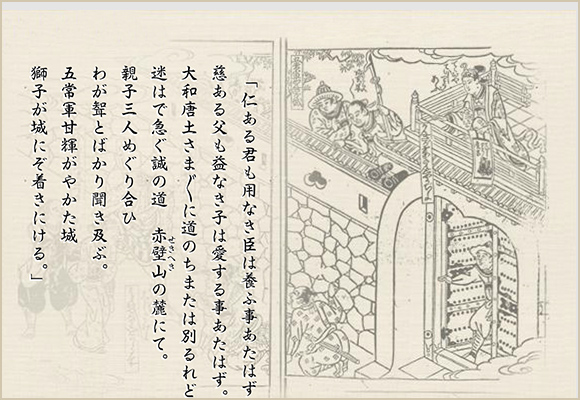 「仁ある君も用なき臣は養ふ事あたはず
慈ある父も益なき子は愛する事あたはず。
大和唐土さま〴〵に道のちまたは別るれど
迷はで急ぐ誠の道　赤壁山の麓にて。
せきへき
親子三人めぐり合ひ
わが聟とばかり聞き及ぶ。
五常軍甘輝がやかた城
獅子が城にぞ着きにける。」